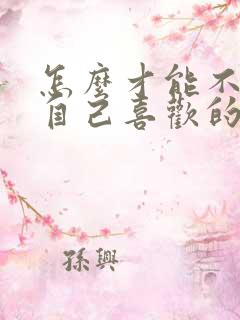 怎麼才能不
自己喜歡的
孫興